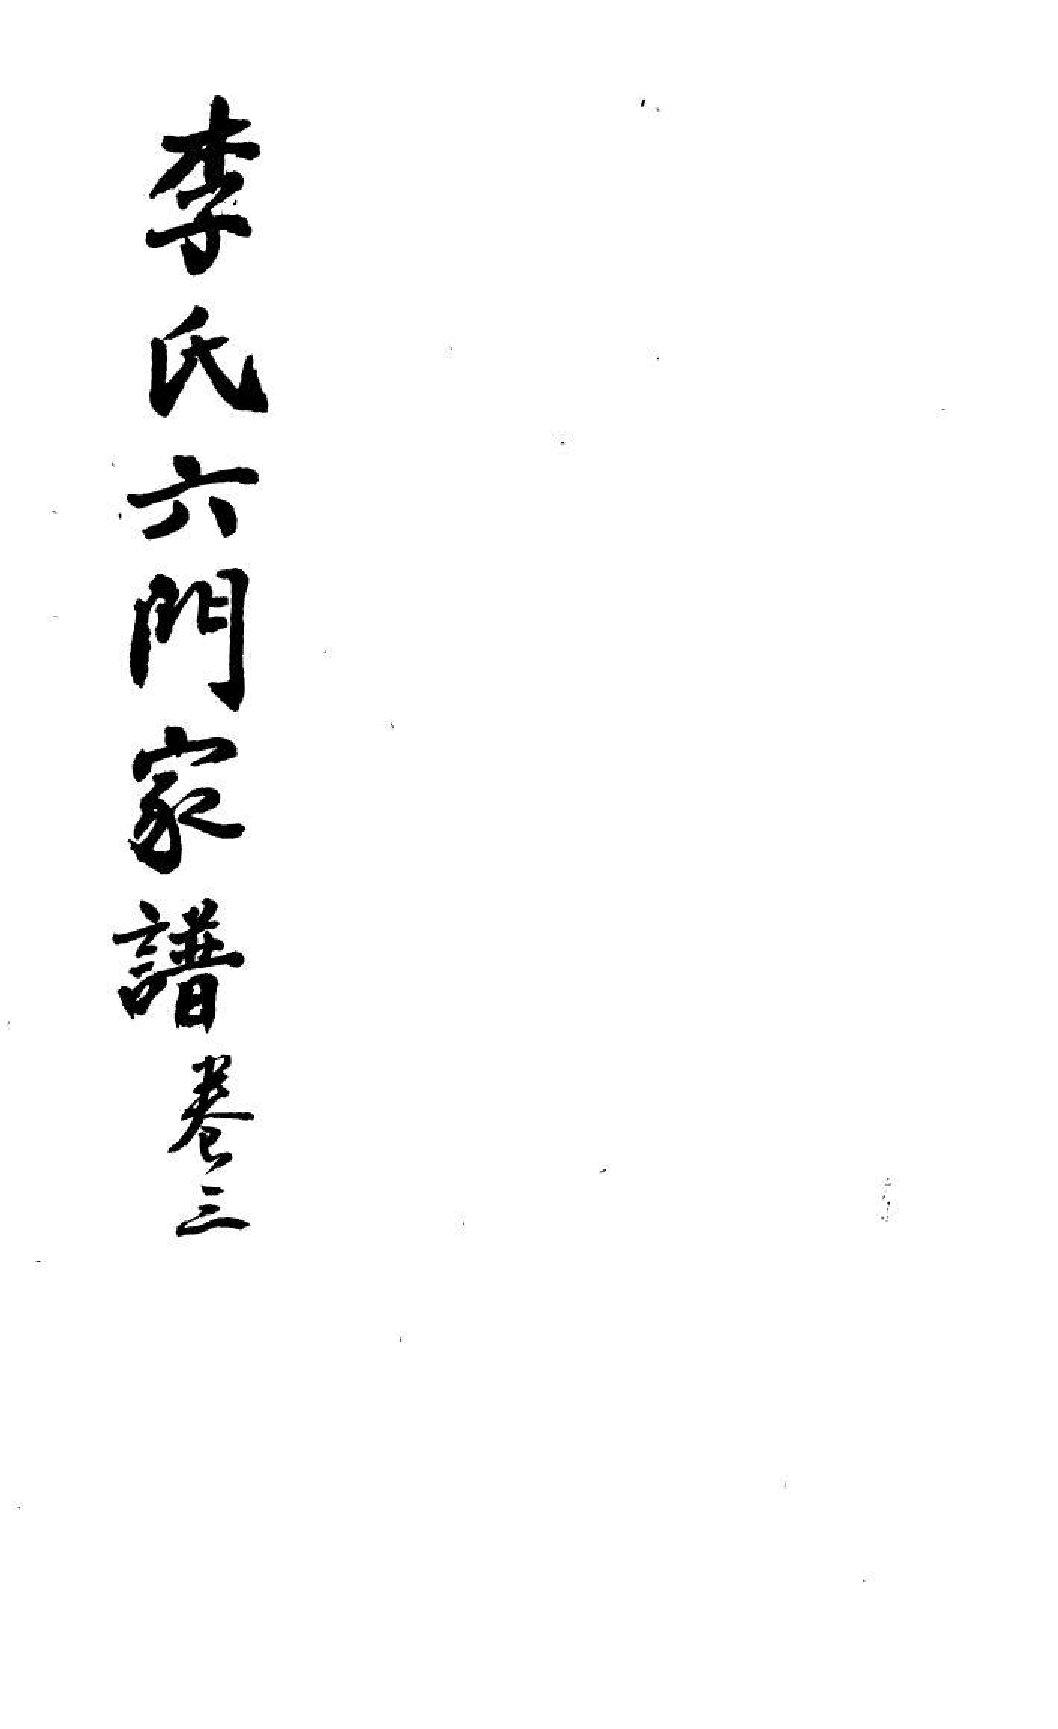 李氏六門家譜卷三